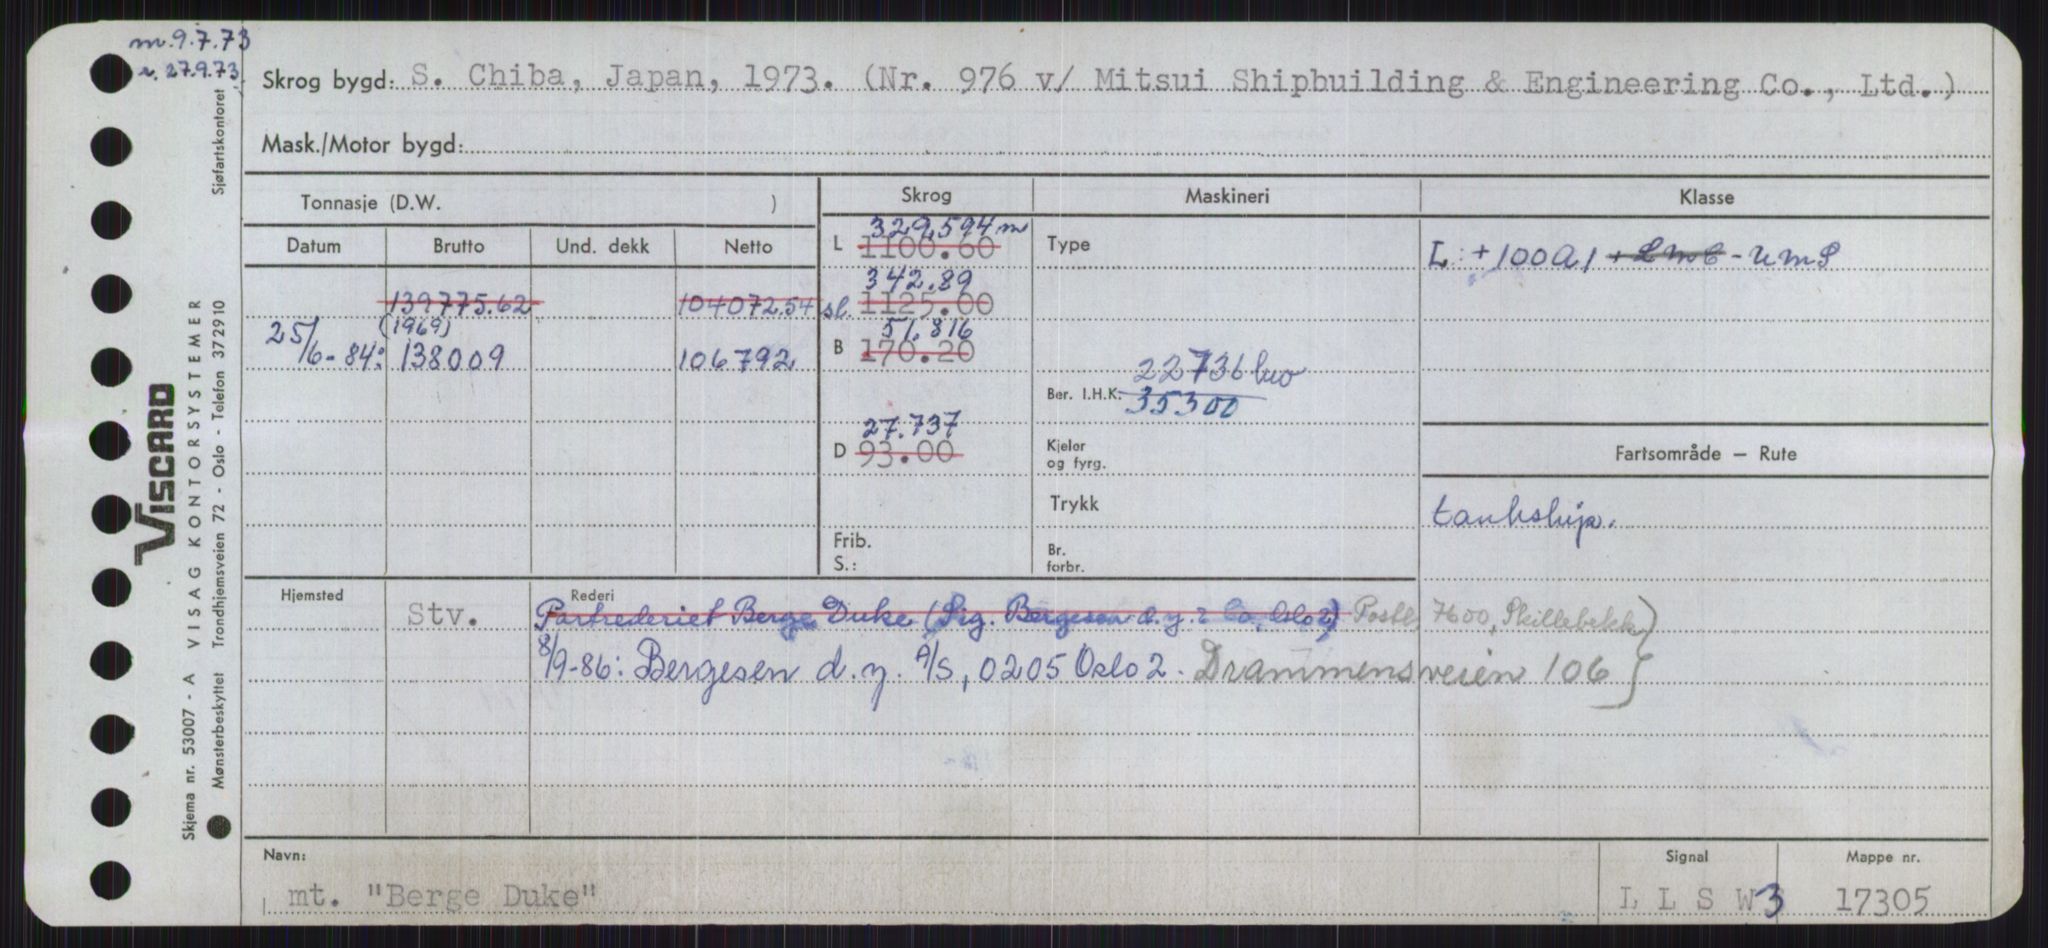 m. 9.7.73
r. 27.9.73
Skrog bygd: S. Chiba, Japan, 1973. (Nr. 976 v/ Mitsui Shipbuilding & Engineering Co., Ltd.)
Mask./Motor bygd:
Tonnasje (D.W. )
Skrog
Maskineri
Klasse
Datum Brutto Und. dekk Netto
139775.62 104072.54
(1969)
25/6-84: 138009 106792
329,594 m
L 1100.60
342.89
sl. 1125.00
51.816
B 170.20
27.737
D 93.00
Frib.
S.:
Type
22736
Ber. I.H.K. 35300
Kjeler
og fyrg.
Trykk
Br.
forbr.
L: +100A1 + LMC - UMS
Fartsområde – Rute
tankskip.
Hjemsted
Stv.
Rederi
Partrederiet Berge Duke (Sig. Bergesen d.y. & Co, Oslo 2) Postb. 7600, Skillebekk
8/9-86: Bergesen d.y. A/S, 0205 Oslo 2. Drammensveien 106
Navn:
mt. "Berge Duke"
Signal
L L S W 3
Mappe nr.
17305
VISCARD
VISAG KONTORSYSTEMER
Skjema nr. 53007 - A
Mønsterbeskyttet Trondhjemsveien 72 - Oslo - Telefon 372910 Sjøfartskontoret